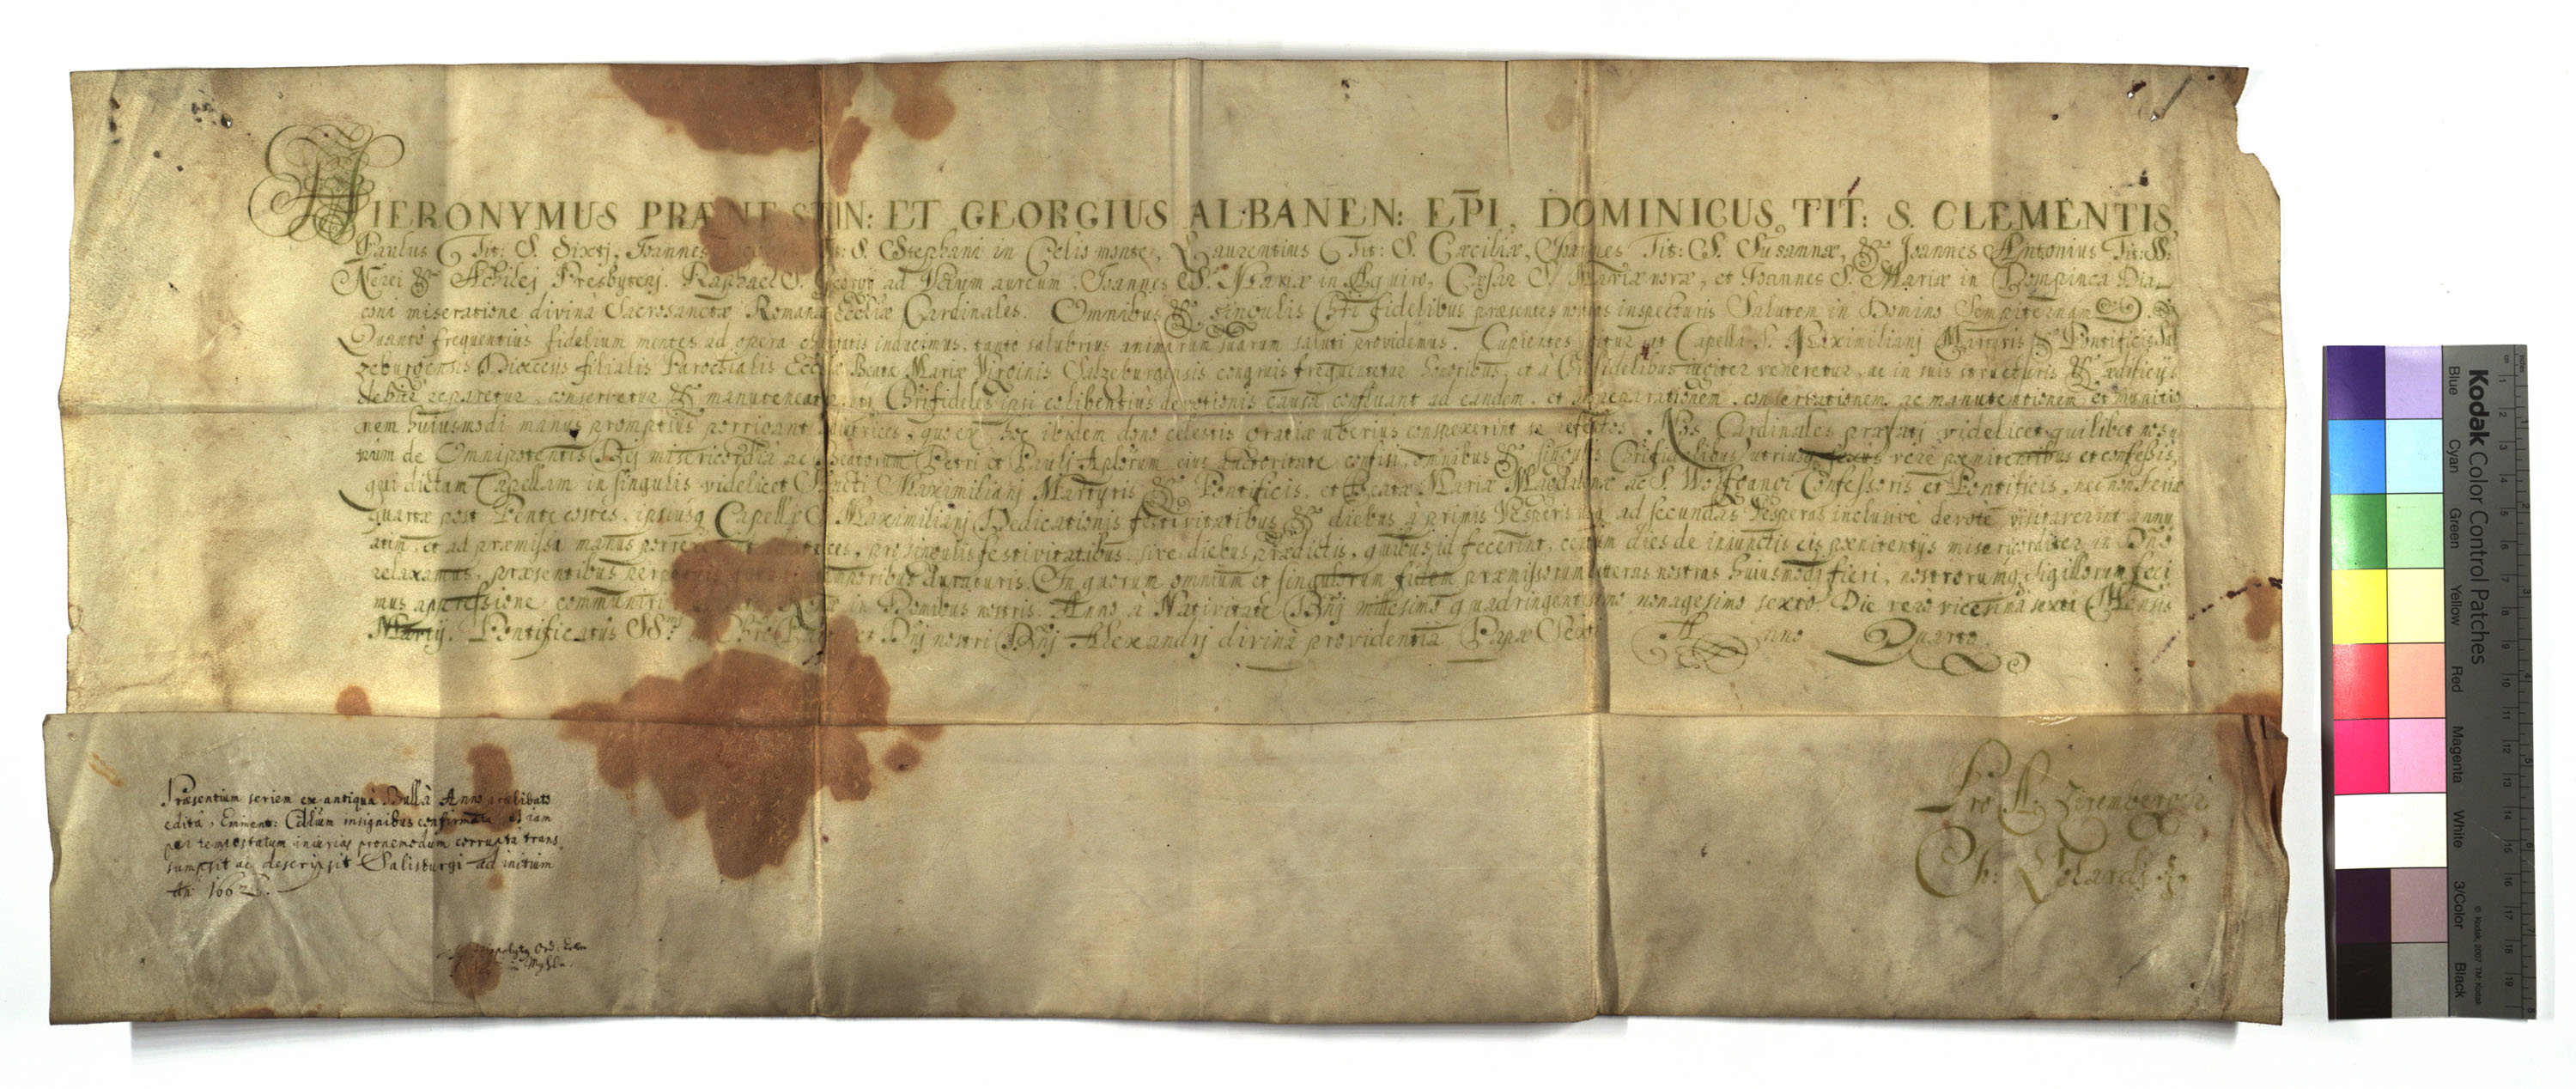 HIERONYMUS PRÆNESTIN: ET GEORGIUS ALBANEN: EPĪ, DOMINICUS, TIT: S. CLEMENTIS,
Paulus Tit: S. Sixtj, Joannes S. Stephani in Celio monte, Laurentius Tit: S. Cæciliæ, Joannes Tit: S. Susannæ, & Joannes Antonius Tit: SS:
Nerei & Achilej Presbyterj. Raphael S. Georgij ad Velum aureum. Joannes S. Mariæ in Aquiro, Cæsar S. Mariæ novæ, et Joannes S. Mariæ in Dompinca Dia-
coni miseratione divinâ Sacrosanctæ Romanæ Eccliæ Cardinales. Omnibus & singulis Chri fidelibus præsentes nostras inspecturis Salutem in Domino Sempiternam.
Quantò frequentiùs fidelium mentes ad opera charitatis inducimus, tantò salubrius animarum suarum saluti providemus. Cupientes igitur ut Capella S. Maximilianj Martyris & Pontificis Sal
zeburgensis Diœcesis filialis Parochialis Eccliæ Beatæ Mariæ Virginis Salzeburgensis congruis frequentetur honoribus, et à Chrifidelibus jugiter veneretur, ac in suis structuris & ædificijs
debitè reparetur, conservetur & manuteneatur, utq Chrifideles ipsi eo libentius devotionis causâ confluant ad eandem, et ad reparationem, conservationem, ac manutentionem et munitio
nem huiusmodi manus promptiùs porrigant adiutrices, quo ex hoc ibidem dono celestis gratiæ uberius conspexerint se refectos. Nos Cardinales præfatj videlicet quilibet nos-
trûm de Omnipotentis Dej misericordiâ ac Beatorum Petri et Paulj Aplorum eius auctoritate confisi, omnibus & singulis Chrifidelibus utriusq sexus verè pœnitentibus et confessis,
qui dictam Capellam in singulis videlicet Sancti Maximilianj Martyris & Pontificis, et Beatæ Mariæ Magdalenæ ac S. Wolfgangi Confessoris et Pontificis, nec non feriæ
quartæ post Pentecostes, ipsiusq Capellæ S. Maximilianj Dedicationis festivitatibus & diebus à primis Vesperis usq ad secundas Vesperas inclusivè devotè visitaverint annu
atim, et ad præmissa manus porrexerint adiutrices, pro singulis festivitatibus, sive diebus prædictis, quibus id fecerint, centum dies de iniunctis eis pœnitentijs misericorditer in Dno
relaxamus, præsentibus perpetuis temporibus duraturis. In quorum omnium et singulorum fidem præmissorum litteras nostras huiusmodj fieri, nostrorumq Sigillorum feci
mus appressione communiri in Domibus nostris. Anno à Nativitate Dnj millesimo quadringentesimo nonagesimo sexto. Die verò vicesimâ sextâ Mensis
Martij. Pontificatûs SSmi in Chro Patris et Dnj nostri Dnj Alexandrj divinâ providentiâ Papæ Sexti Anno Quarto.
Præsentium seriem ex antiquâ Bullâ Anno prælibato
editâ, Eminent: Cdlium insignibus confirmatâ et iam
per tempestatum iniurias propemodum corruptâ trans
sumpsit ac descripsit Salisburgi ad initium
An: 1662.
Pro A: Ziremberger.
Ch: